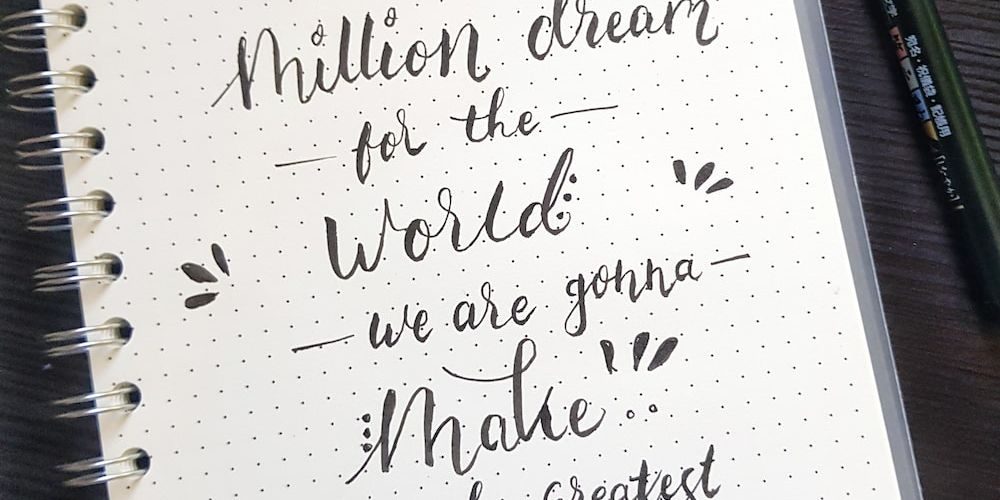 Million dream
for the
World
we are gonna
Make
greatest
宛名・祝儀袋・記帳用